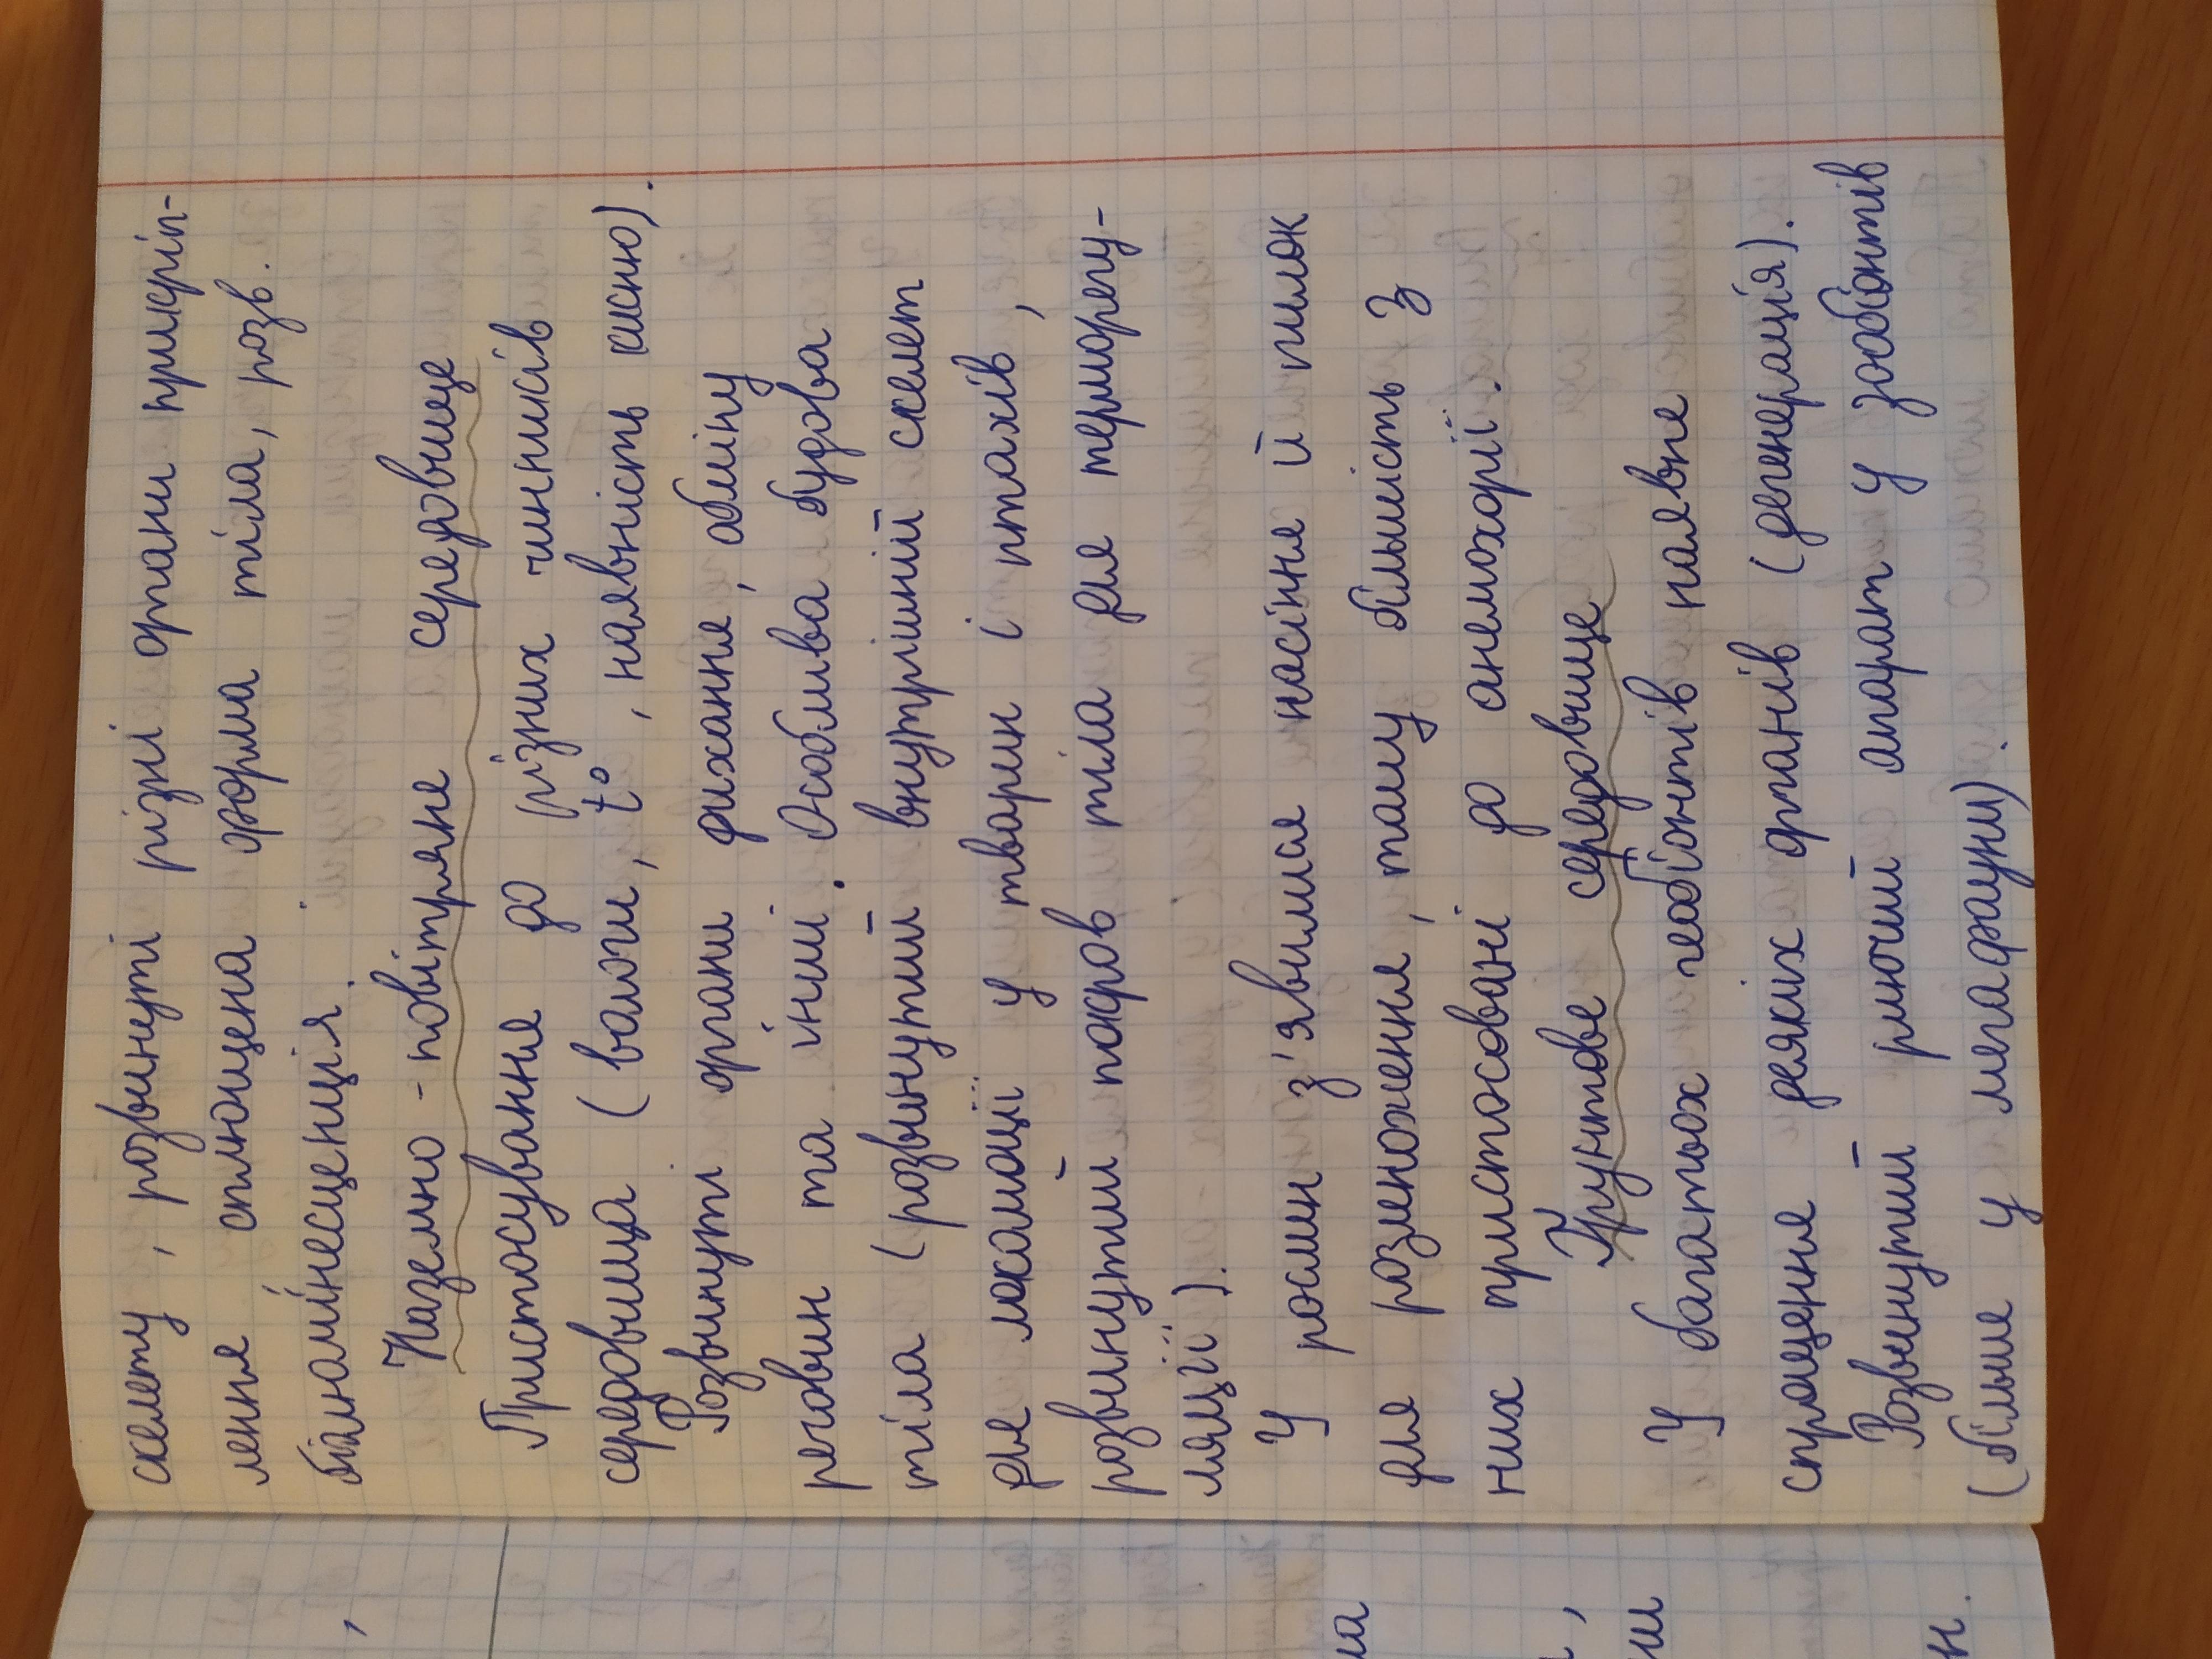 скелету, розвинуті різні органи прикріп-
лення сплющена форма тіла, розв.
біломінесценція.
Наземно-повітряне середовище
Пристосування до різних чинників
середовища (вологи, t°, наявність кисню).
Розвинуті органи дихання, обміну
речовин та інші. Особлива будова
тіла (розвинутий внутрішній скелет
для локомоції у тварин і птахів,
розвинутий покров тіла для терморегу-
ляції).
У рослин з'явилися насіння й пилок
для розмноження, тому більшість з
них пристосовані до анемохорії.
Ґрунтове середовище
У багатьох геобіонтів наявне
спрощення деяких органів (дегенерація).
Розвинутий риючий апарат у зообіонтів
(більше у мегафауни).
ла
,
ни
н.
,